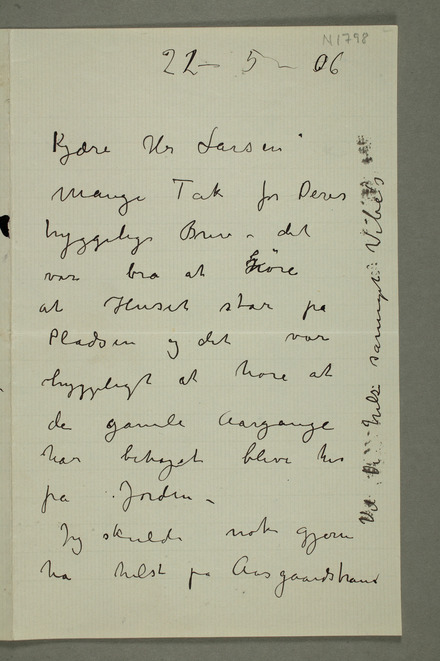 N 1798
22 – 5 – 06
Kjære Hr Larsen
Mange Tak for Deres
hyggelige Brev – det
var bra at höre
at Huset står på
Pladsen og det var
hyggeligt at höre at
de gamle Aargange
har behaget blive her
på Jorden –
Jeg skulde nok gjerne
ha hilst på Aasgaardstrand
Vil De hilse